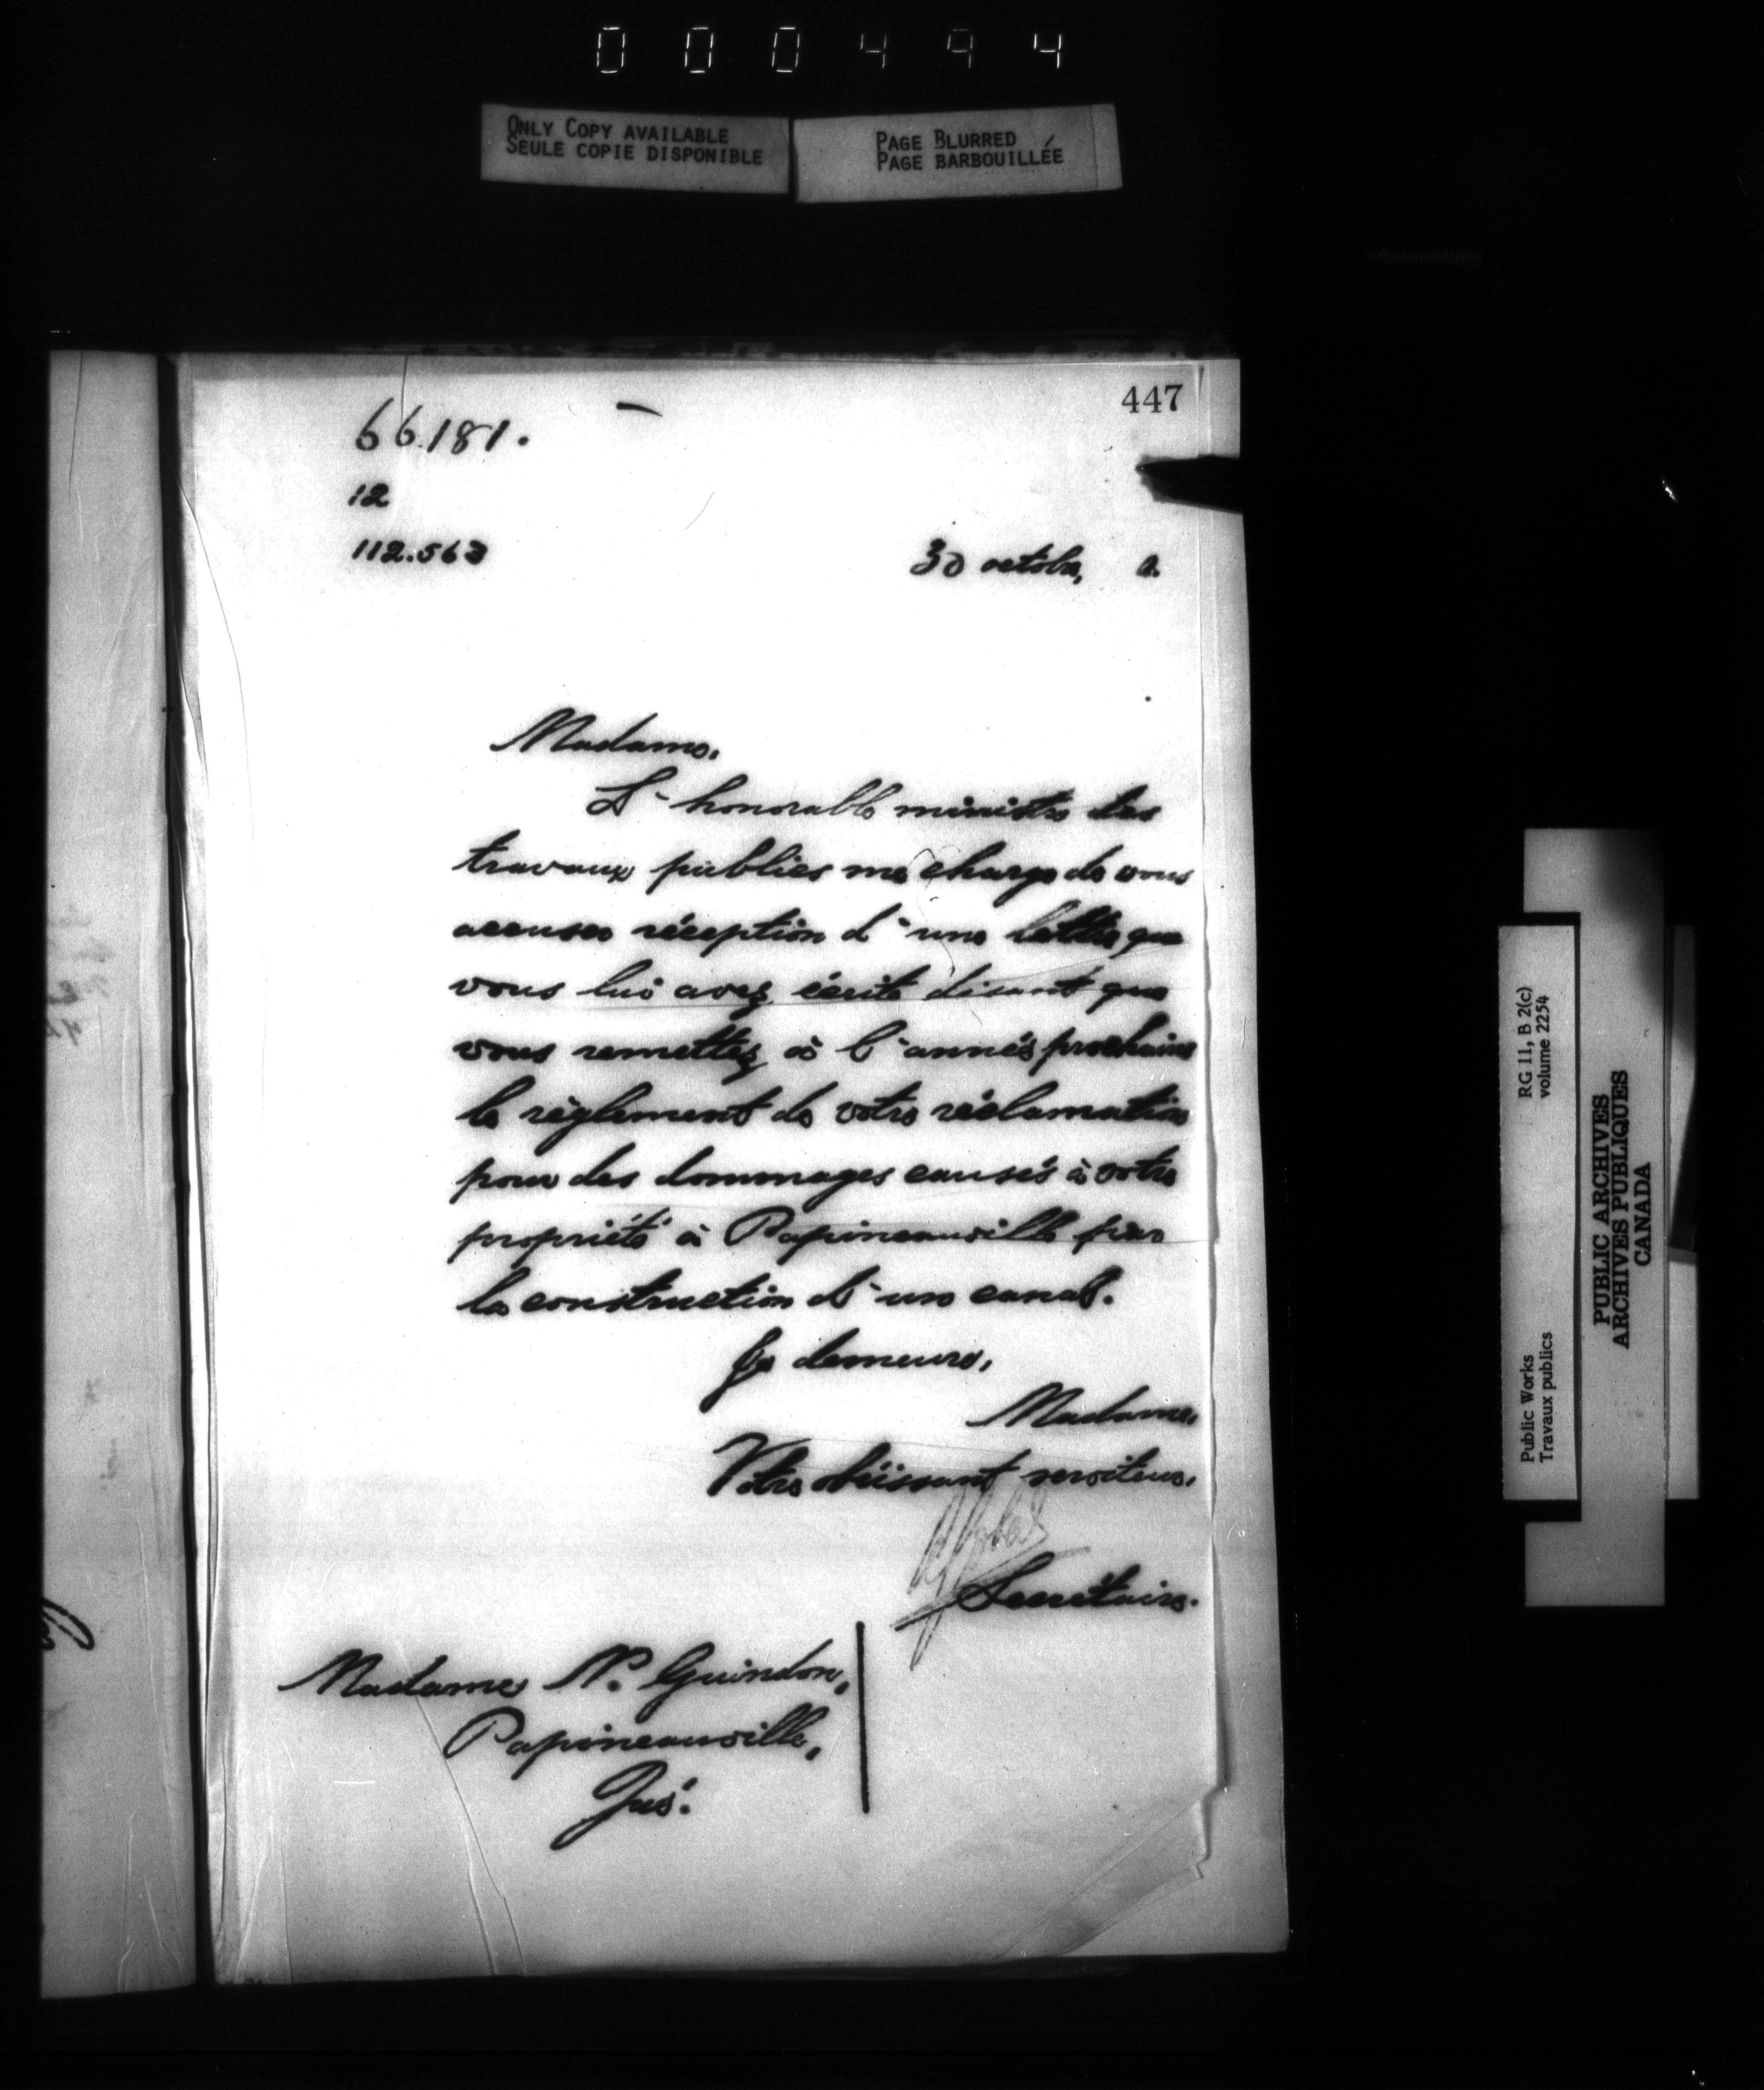 000494
ONLY COPY AVAILABLE
SEULE COPIE DISPONIBLE
PAGE BLURRED
PAGE BARBOUILLÉE
447
66.181.
12
112.563
30 octobre,
Madame,
L'honorable ministre des
travaux publics me charge de vous
accuser réception d'une lettre que
vous lui avez écrite disant que
vous remettez à l'année prochaine
le règlement de votre réclamation
pour des dommages causés à votre
propriété à Papineauville par
la construction d'un canal.
Je demeure,
Madame,
Votre obéissant serviteur,
Secrétaire.
Madame N. Guindon,
Papineauville,
Qué.
RG 11, B 2(c)
volume 2254
Public Works
Travaux publics
PUBLIC ARCHIVES
ARCHIVES PUBLIQUES
CANADA